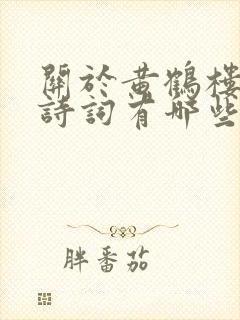 關於黄鶴樓
詩詞有哪些
胖番茄